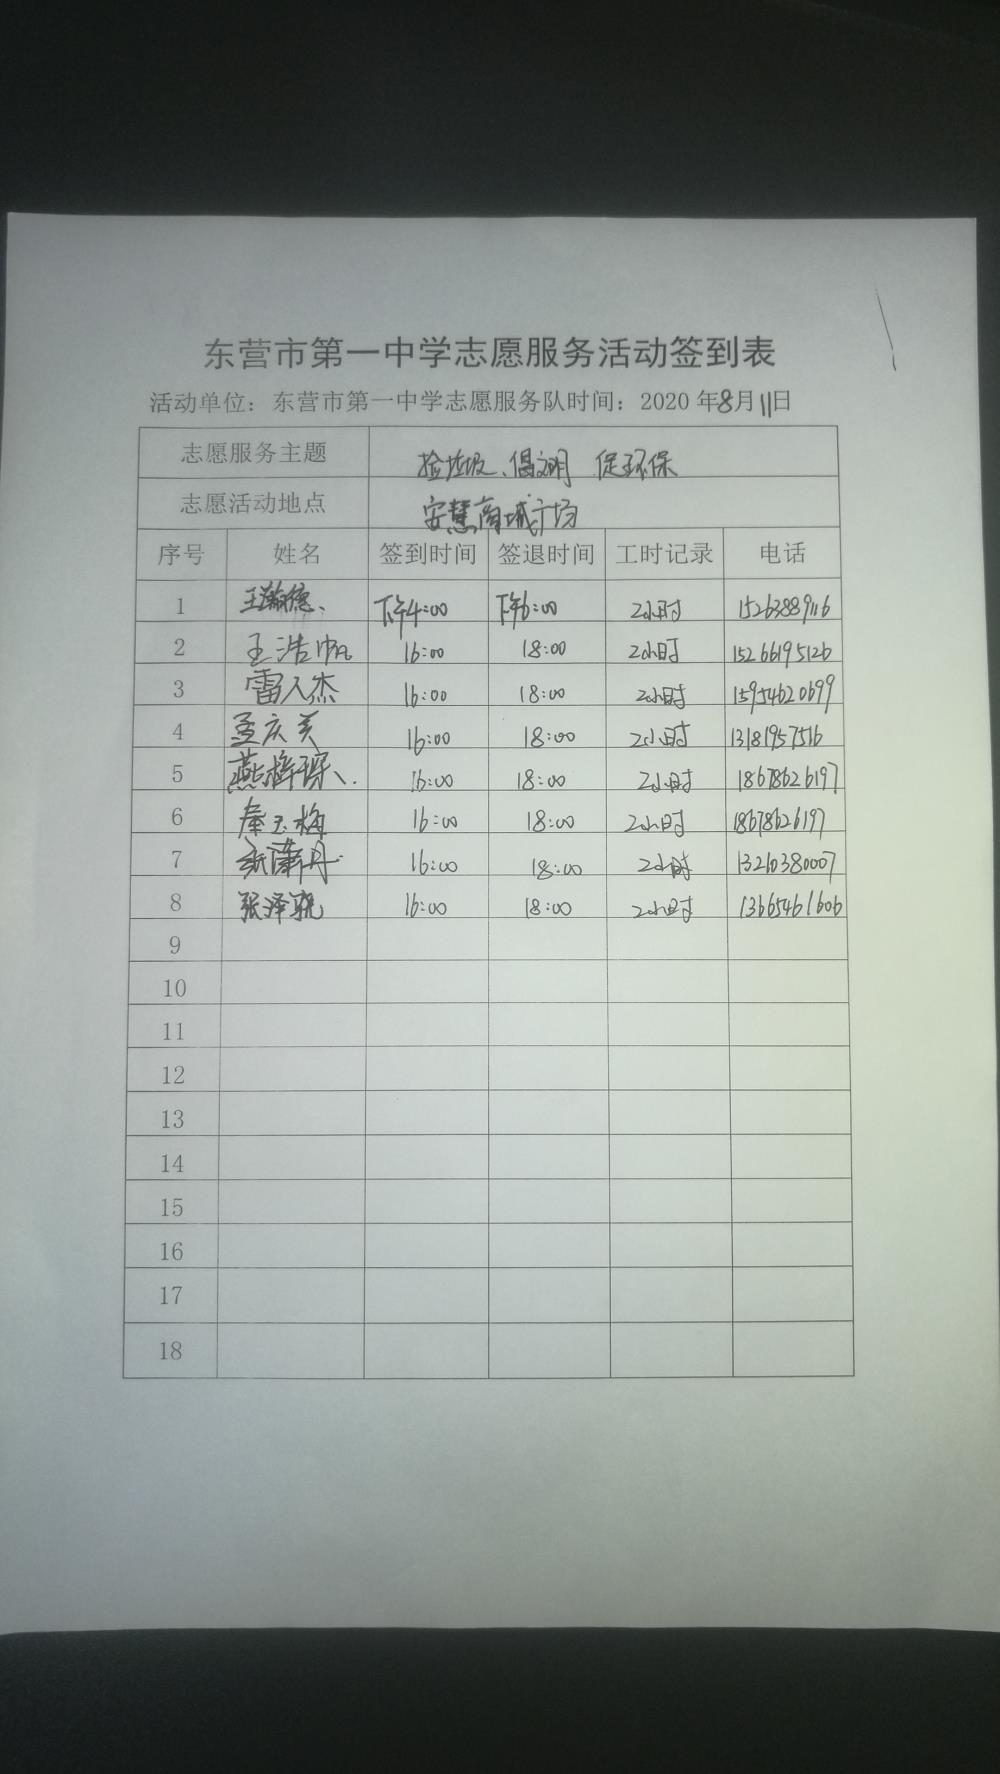 东营市第一中学志愿服务活动签到表
活动单位：东营市第一中学志愿服务队时间：2020年8月11日
志愿服务主题 捡垃圾、倡文明 促环保
志愿活动地点 安慧商城广场
序号 姓名 签到时间 签退时间 工时记录 电话
1 王瀚德、 下午4:00 下午6:00 2小时 15263889116
2 王浩帆 16:00 18:00 2小时 15266195126
3 雷人杰 16:00 18:00 2小时 15954620699
4 孟庆美 16:00 18:00 2小时 13181957516
5 燕梓琛 16:00 18:00 2小时 18678626197
6 秦玉梅 16:00 18:00 2小时 18678626197
7 16:00 18:00 2小时 13210380007
8 张泽骁 16:00 18:00 2小时 13665461606
9
10
11
12
13
14
15
16
17
18